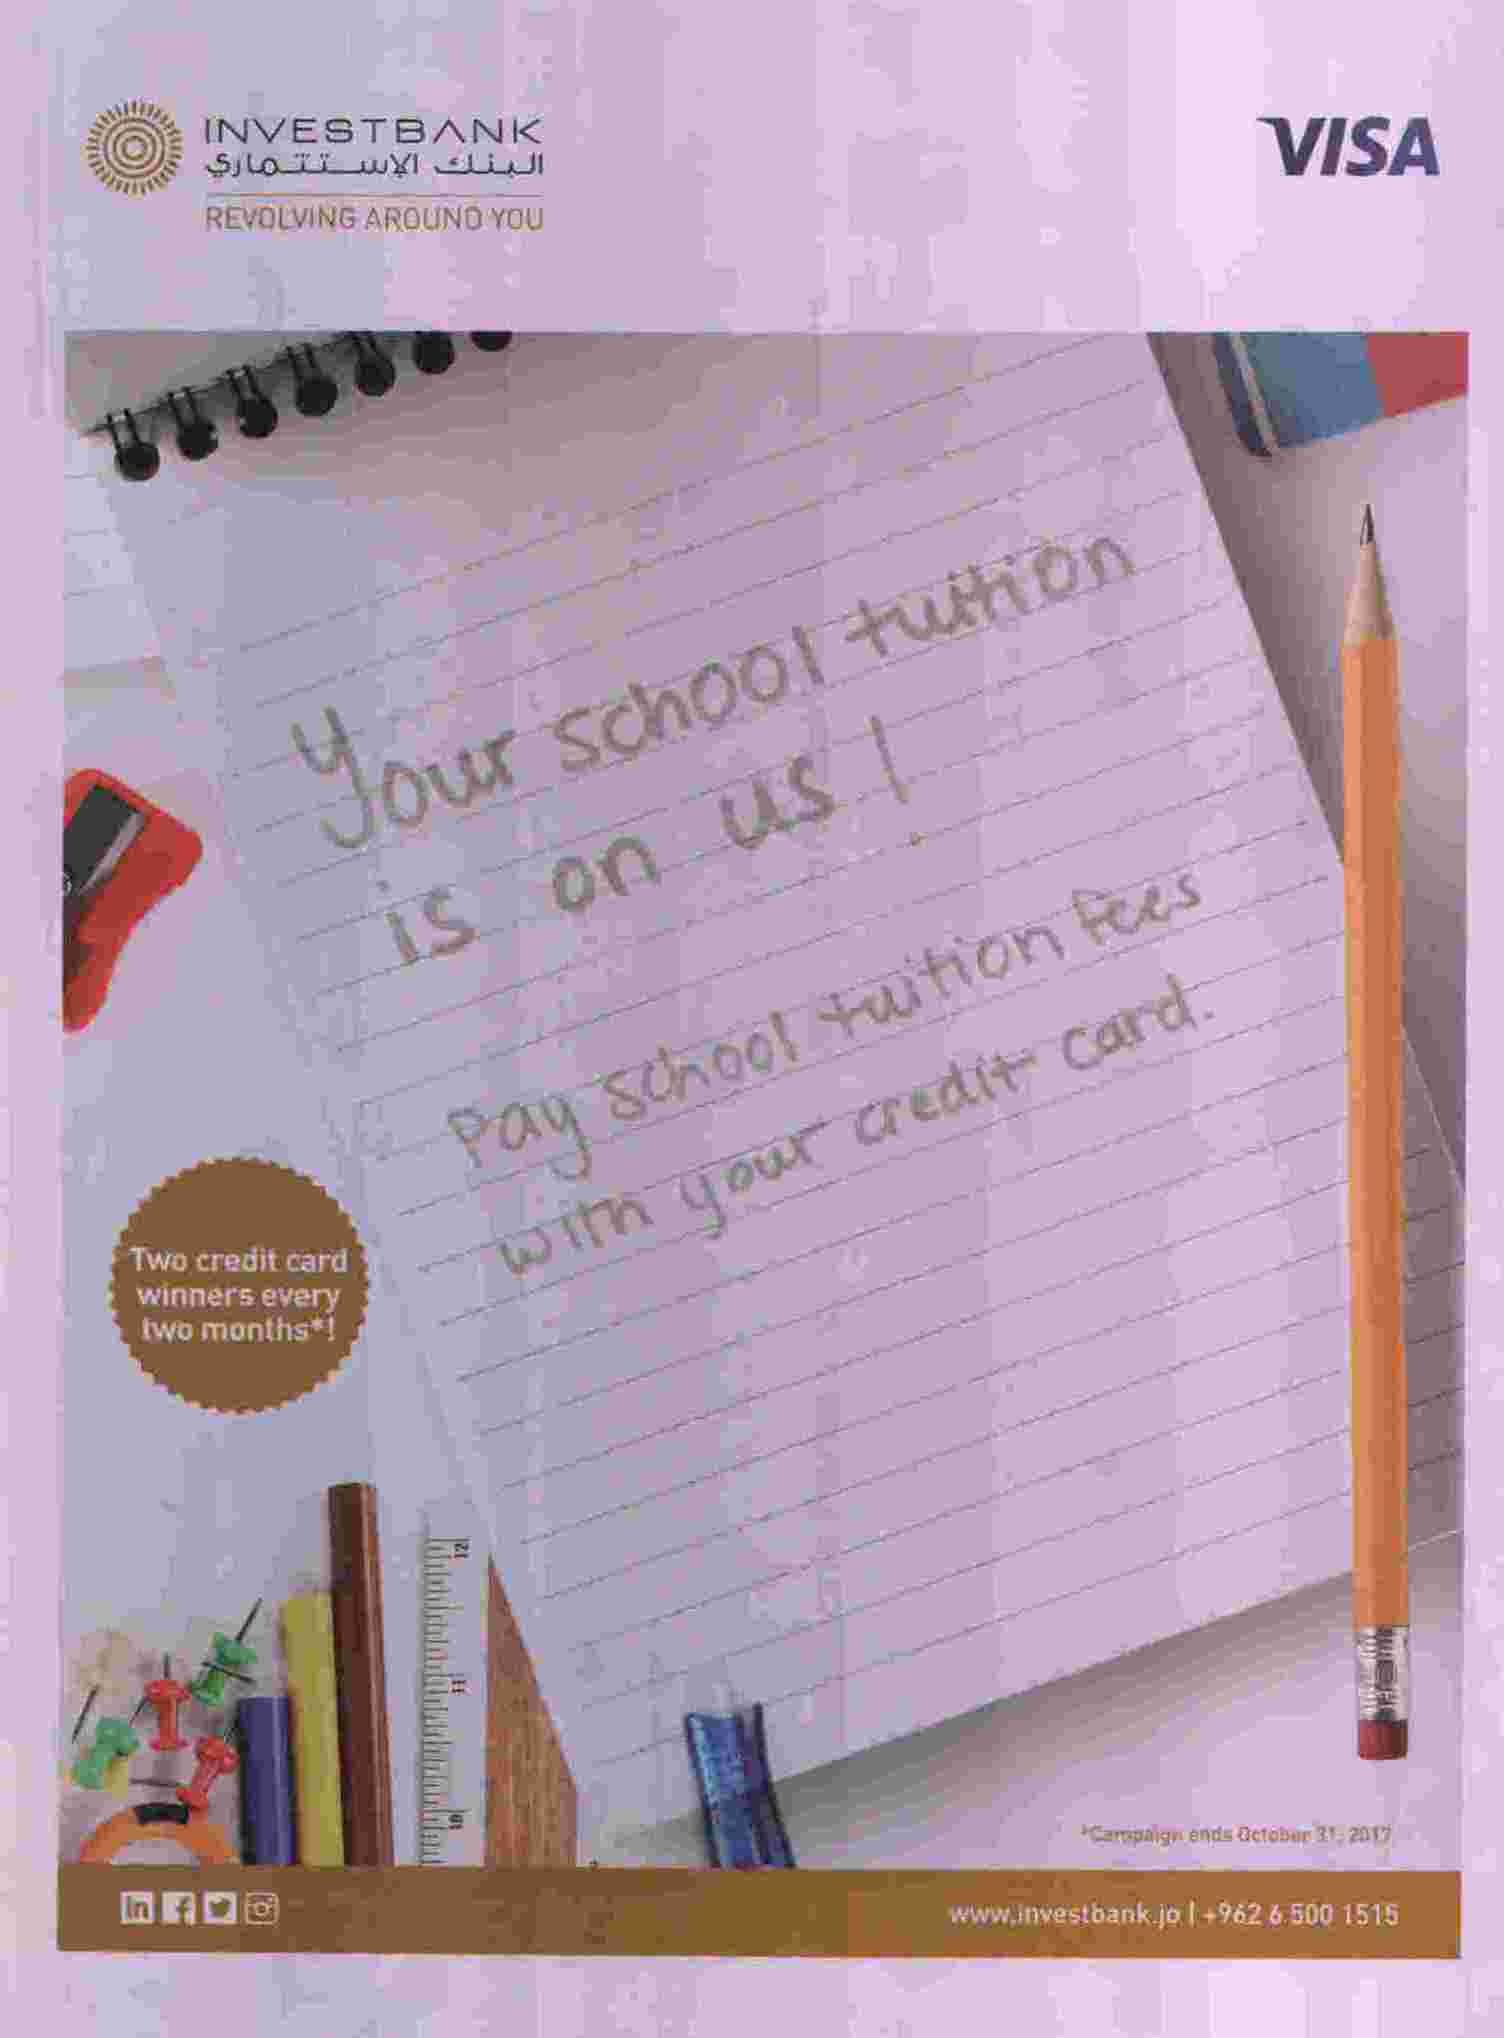 INVESTBANK
البنك الإستثماري
REVOLVING AROUND YOU
VISA
Your school tuition
is on us!
Pay school tuition fees
with your credit card.
Two credit card
winners every
two months*!
12
11
10
*Campaign ends October 31, 2017
in f
www.investbank.jo | +962 6 500 1515